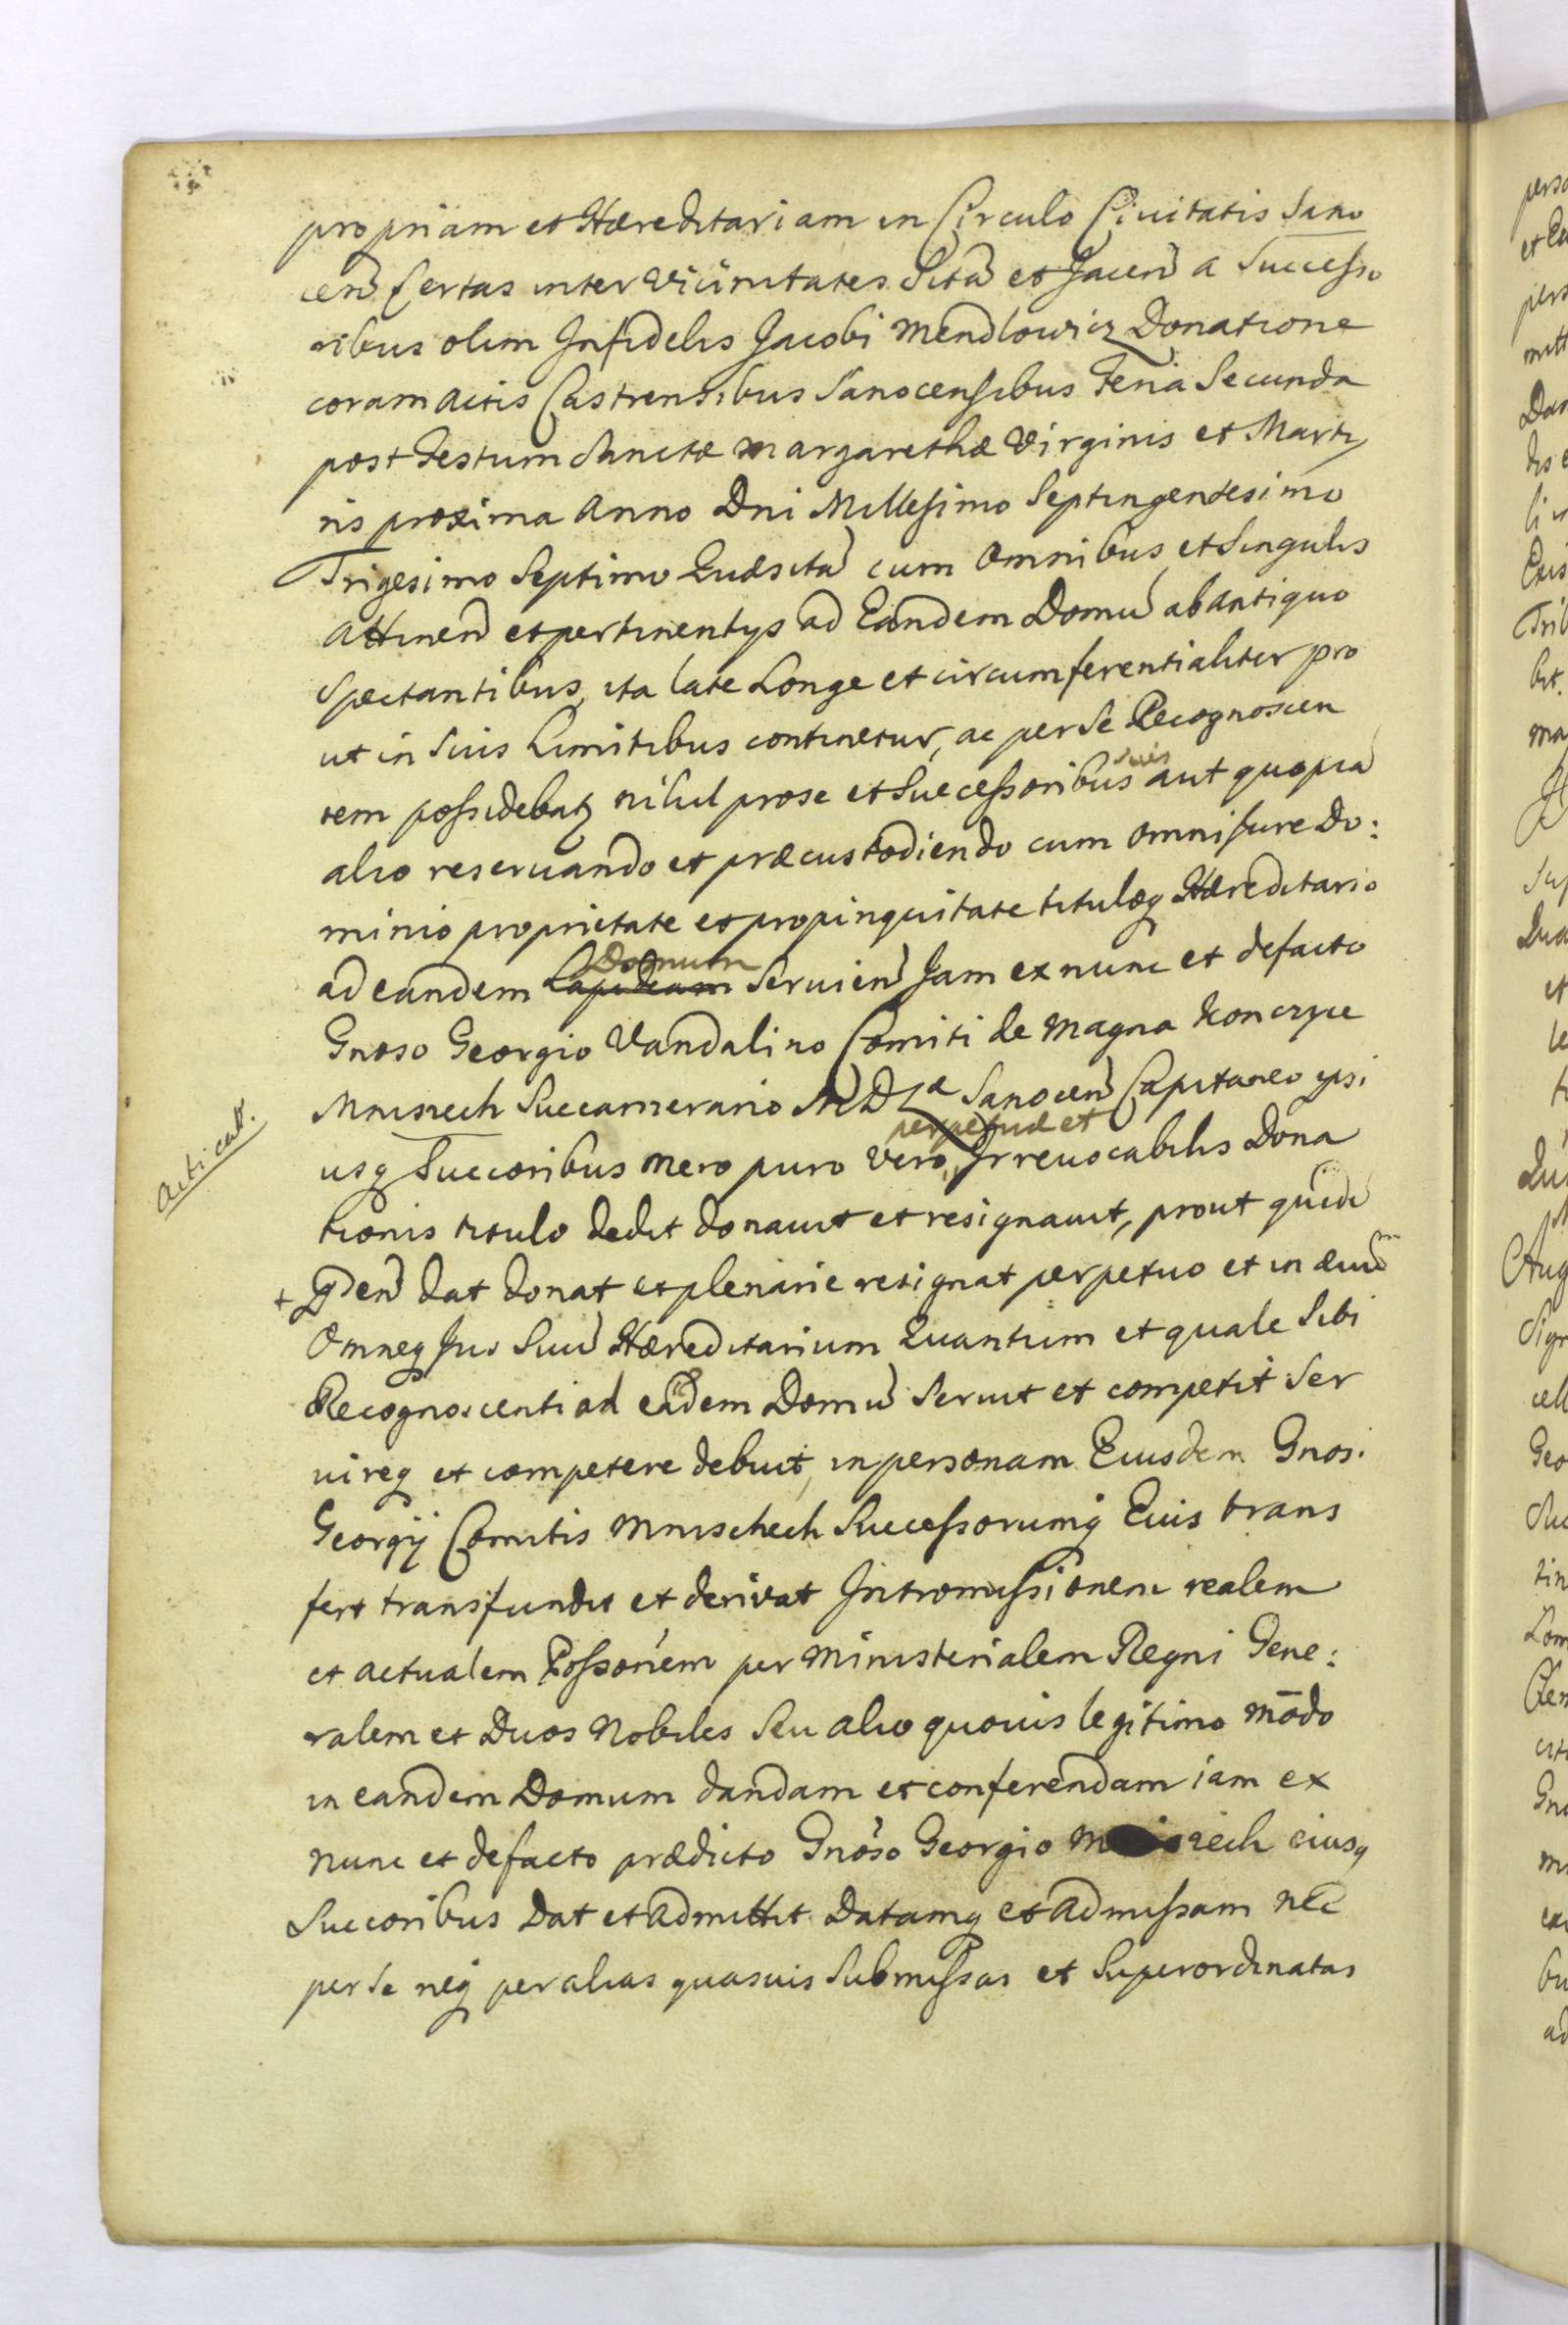 propriam et Hæreditariam in Circulo Civitatis Sano
cen Certas inter Vicinitates Sita et Jacen a Successo
ribus olim Infidelis Jacobi Mendlowicz Donatione
coram actis Castrensibus Sanocensibus Feria Secunda
post Festum Sanctæ Margarethæ Virginis et Marty
ris proxima Anno Dni Millesimo Septingentesimo
Trigesimo Septimo Quæsita cum Omnibus et Singulis
Attinen et pertinentys ad Eandem Domu ab Antiquo
Spectantibus, ita late Longe et circumferentialiter pro
ut in Suis Limitibus continetur, ac per Se Recognoscen
suis
tem possidebatz nihil prose et Successoribus aut quopia
alio reservando et præcustodiendo cum omni Jure Do:
minio proprietate et propinquitate tituloq Hæreditario
Domum
ad eandem Lapideam Servien Jam ex nunc et defacto
Gnoso Georgio Vandalino Comiti de Magna Konczyce
Mniszech Succamerario M D L æ Sanocen Capitaneo ysi
perpetuæ et
Acticat.
usq Succoribus Mero puro Vero, Irrevocabilis Dona
tionis titulo dedit donavit et resignavit, prout quide
+ Pden dat donat et plenarie resignat perpetuo et in ævum
Omneq Jus Suu Hæreditarium Quantum et quale Sibi
Recognoscenti ad eadem Domu Servit et competit Ser
vireq et competere debuit, in personam Eiusdem Gnosi
Georgij Comitis Mnischech Successorumq Eius trans
fert transfundit et derivat Intromissionem realem
et actualem Possoriem per Ministerialem Regni Gene:
ralem et Duos Nobiles Seu alio quovis legitimo modo
in eandem Domum dandam et conferendam iam ex
nunc et defacto prædicto Gnoso Georgio eiusq
Succoribus Dat et Admittit Datamq et Admissam nec
per se neq per alias quasvis Submissas et Superordinatas